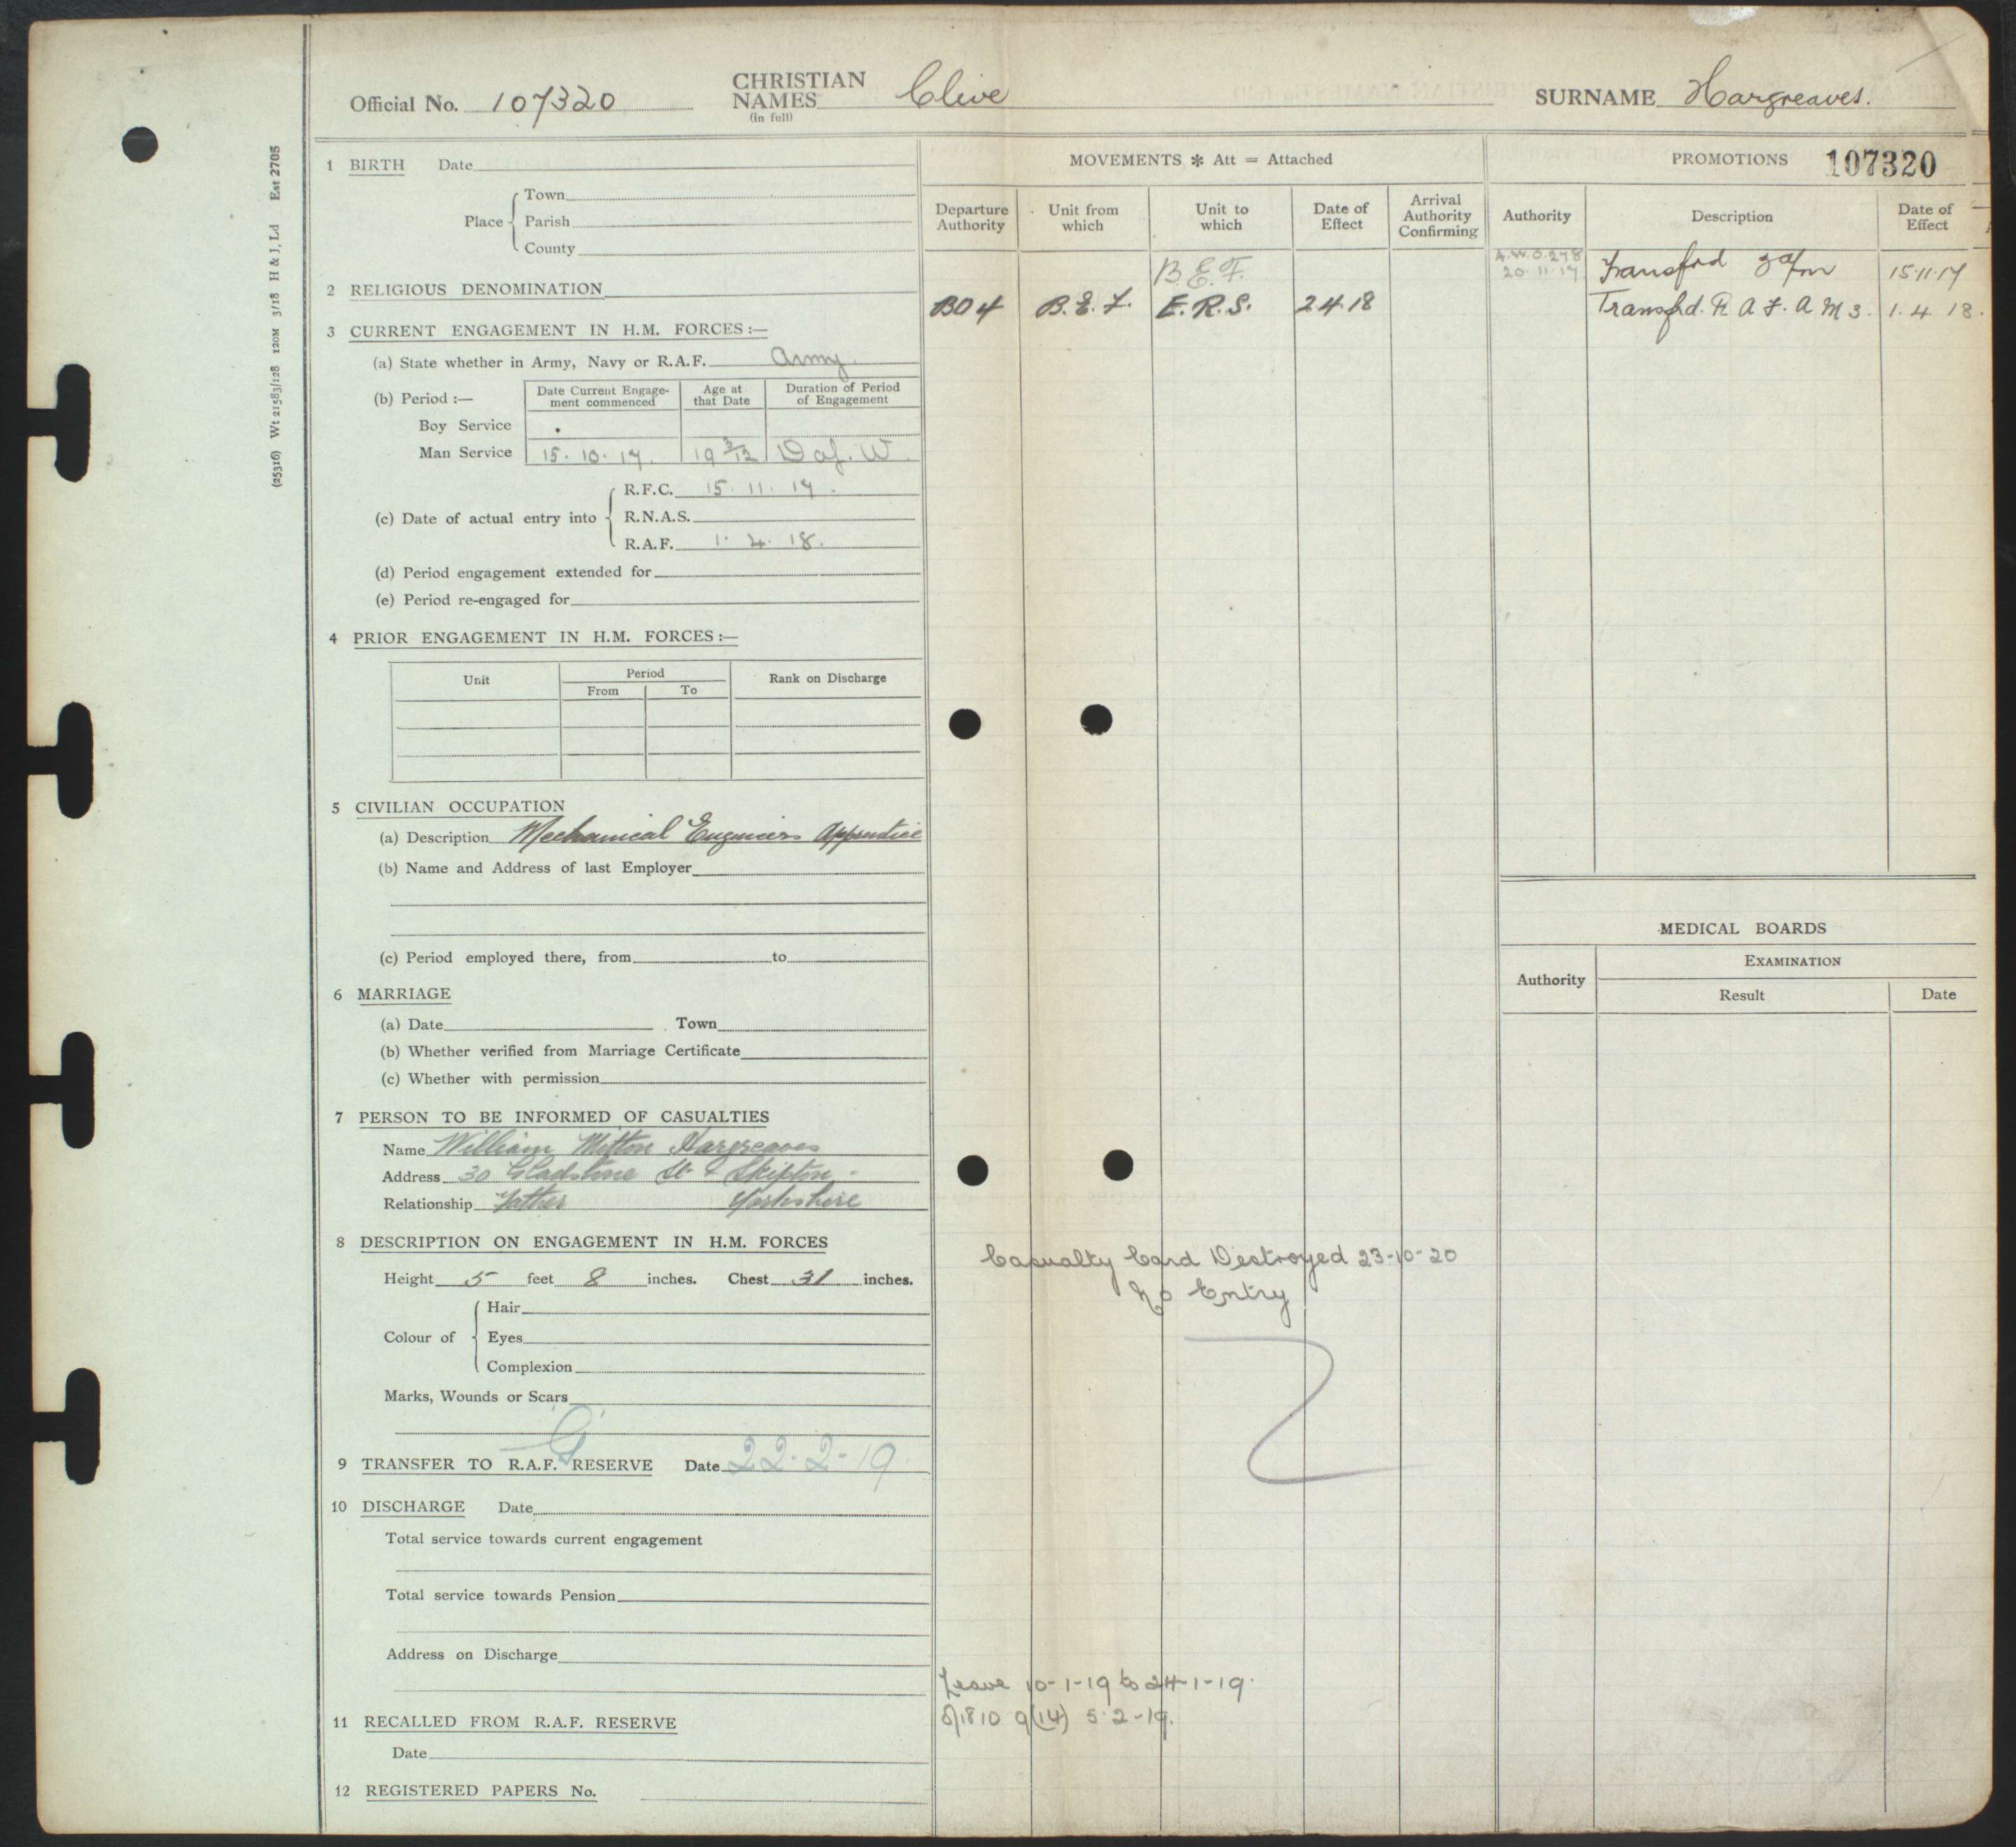 Official No. 107320 CHRISTIAN NAMES (in full) Clive SURNAME Hargreaves.
(25316) Wt 21583/128 120M 3/18 H & J, Ld Est 2705
1 BIRTH Date
Place Town
Parish
County
2 RELIGIOUS DENOMINATION
3 CURRENT ENGAGEMENT IN H.M. FORCES :—
(a) State whether in Army, Navy or R.A.F. Army
(b) Period :— Date Current Engagement commenced Age at that Date Duration of Period of Engagement
Boy Service
Man Service 15. 10. 17. 19 3/12 D of. W.
(c) Date of actual entry into R.F.C. 15. 11. 17.
R.N.A.S.
R.A.F. 1. 4. 18.
(d) Period engagement extended for
(e) Period re-engaged for
4 PRIOR ENGAGEMENT IN H.M. FORCES :—
Unit Period Rank on Discharge
From To
5 CIVILIAN OCCUPATION
(a) Description Mechanical Engineers Apprentice
(b) Name and Address of last Employer
(c) Period employed there, from to
6 MARRIAGE
(a) Date Town
(b) Whether verified from Marriage Certificate
(c) Whether with permission
7 PERSON TO BE INFORMED OF CASUALTIES
Name William Mitton Hargreaves
Address 30 Gladstone St Skipton
Relationship Father Yorkshire
8 DESCRIPTION ON ENGAGEMENT IN H.M. FORCES
Height 5 feet 8 inches. Chest 31 inches.
Colour of Hair
Eyes
Complexion
Marks, Wounds or Scars
9 TRANSFER TO R.A.F. RESERVE Date 22-2-19
G
10 DISCHARGE Date
Total service towards current engagement
Total service towards Pension
Address on Discharge
11 RECALLED FROM R.A.F. RESERVE
Date
12 REGISTERED PAPERS No.
MOVEMENTS * Att = Attached
Departure Authority Unit from which Unit to which Date of Effect Arrival Authority Confirming
B.E.F.
BO4 B.E.F. E.R.S. 2.4.18
Casualty Card Destroyed 23-10-20
No Entry
Leave 10-1-19 to 24-1-19.
1810 9(14) 5-2-19.
PROMOTIONS 107320
Authority Description Date of Effect
A.W.O.278
20.11.17 Transfrd 3a/m 15.11.17
Transfd. R A F. A M 3. 1. 4 18.
MEDICAL BOARDS
Authority EXAMINATION
Result Date